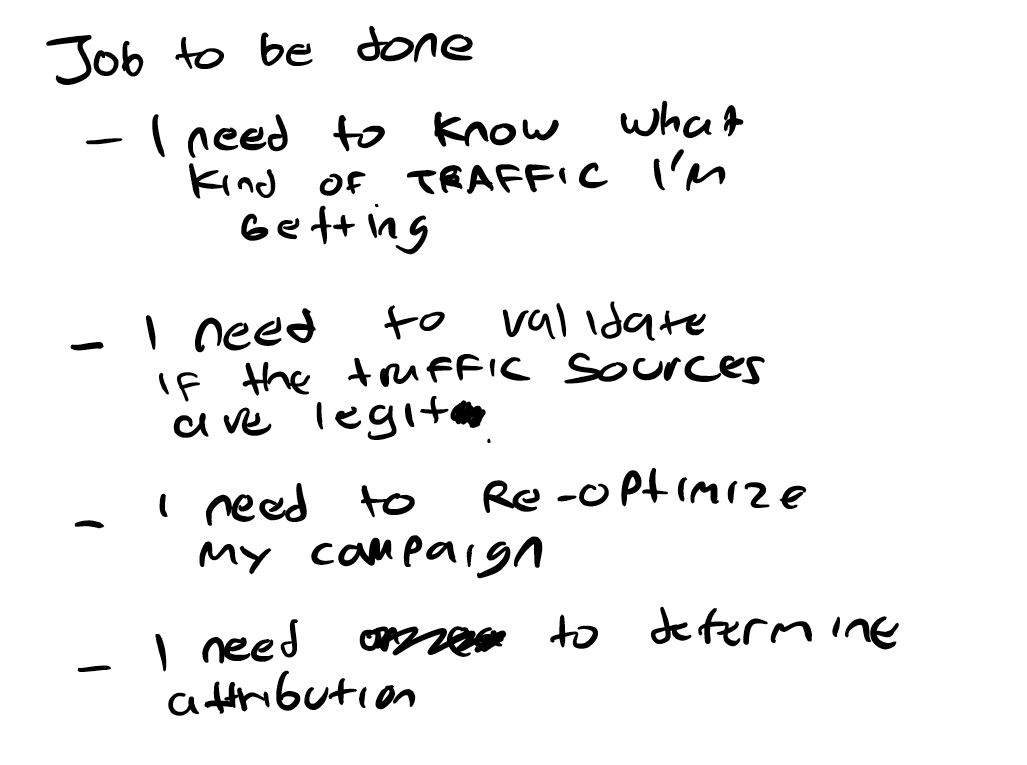 Job to be done
- I need to know what
kind of TRAFFIC I'm
Getting
- I need to validate
if the traffic sources
are legit.
- I need to Re-optimize
my campaign
- I need to determine
attribution